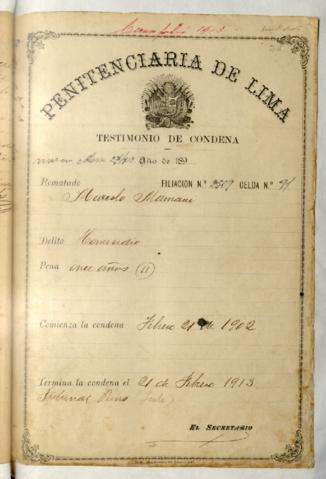 PENITENCIARIA DE LIMA
TESTIMONIO DE CONDENA
Año de 189
Rematado FILIACION N.º CELDA N.º
Mamani
Delito Homicidio
Pena once años (11)
Comienza la condena Febrero 21 de 1902
Termina la condena el 21 de Febrero 1913
Tribunal Puno
EL SECRETARIO